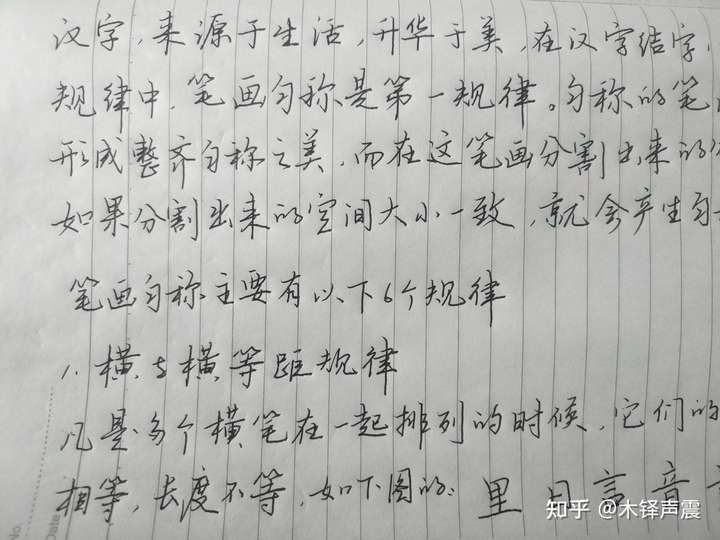 汉字，来源于生活，升华于美，在汉字结字，
规律中，笔画匀称是第一规律。匀称的笔
形成整齐匀称之美，而在这笔画分割出来的
如果分割出来的空间大小一致，就会产生匀
笔画匀称主要有以下6个规律
1.横与横等距规律
凡是多个横笔在一起排列的时候，它们的
相等，长度不等，如下图的：里日言音
No.
Date
知乎 @木铎声震